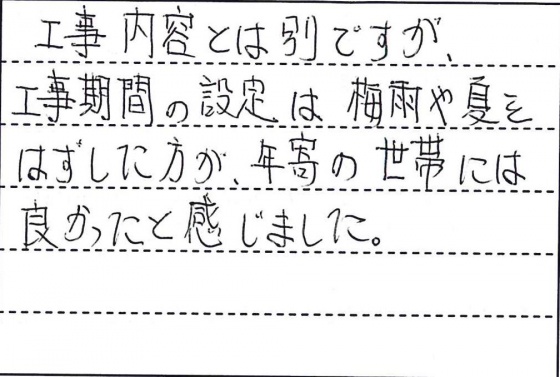 工事内容とは別ですが、
工事期間の設定は梅雨や夏を
はずした方が、年寄の世帯には
良かったと感じました。